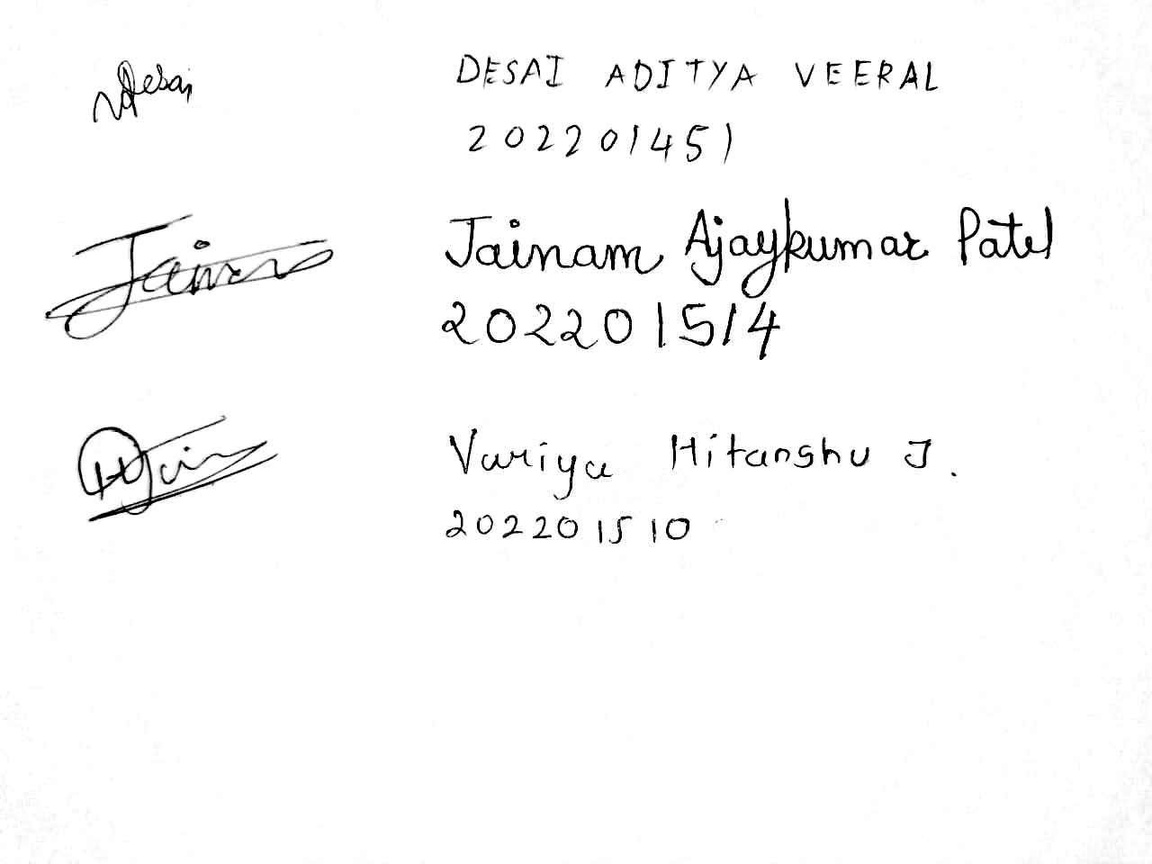 Desai DESAI ADITYA VEERAL
202201451
Jainam Ajaykumar Patel
202201514
Variya Hitanshu J.
202201510